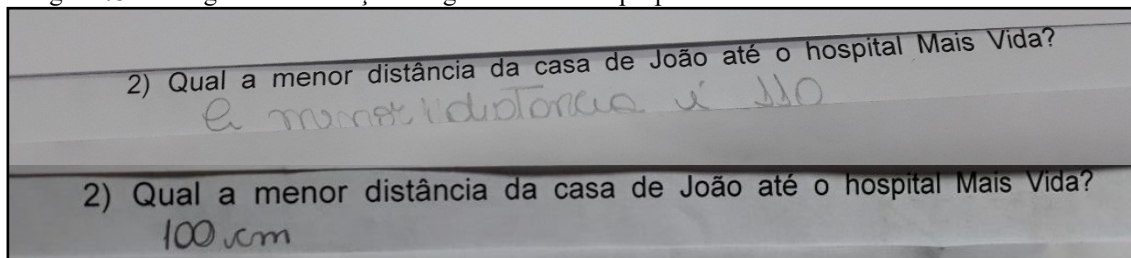 2) Qual a menor distância da casa de João até o hospital Mais Vida?
a menor distancia é 110
2) Qual a menor distância da casa de João até o hospital Mais Vida?
100 cm